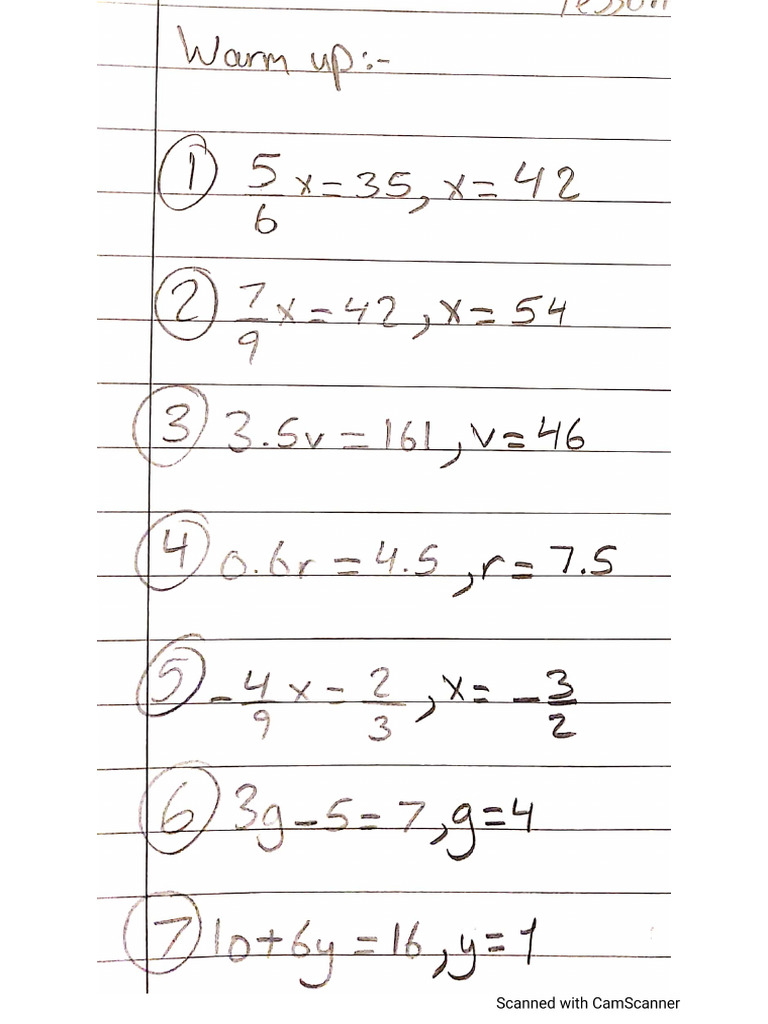 lesson
Warm up:-
① 5/6 x = 35, x = 42
② 7/9 x = 42, x = 54
③ 3.5v = 161, v = 46
④ 0.6r = 4.5, r = 7.5
⑤ -4/9 x = 2/3, x = -3/2
⑥ 3g - 5 = 7, g = 4
⑦ 10 + 6y = 16, y = 1
Scanned with CamScanner